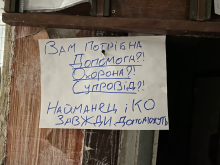 Вам потрібна
Допомога?!
Охорона?!
Супровід?!
Найманець і КО
завжди допоможуть